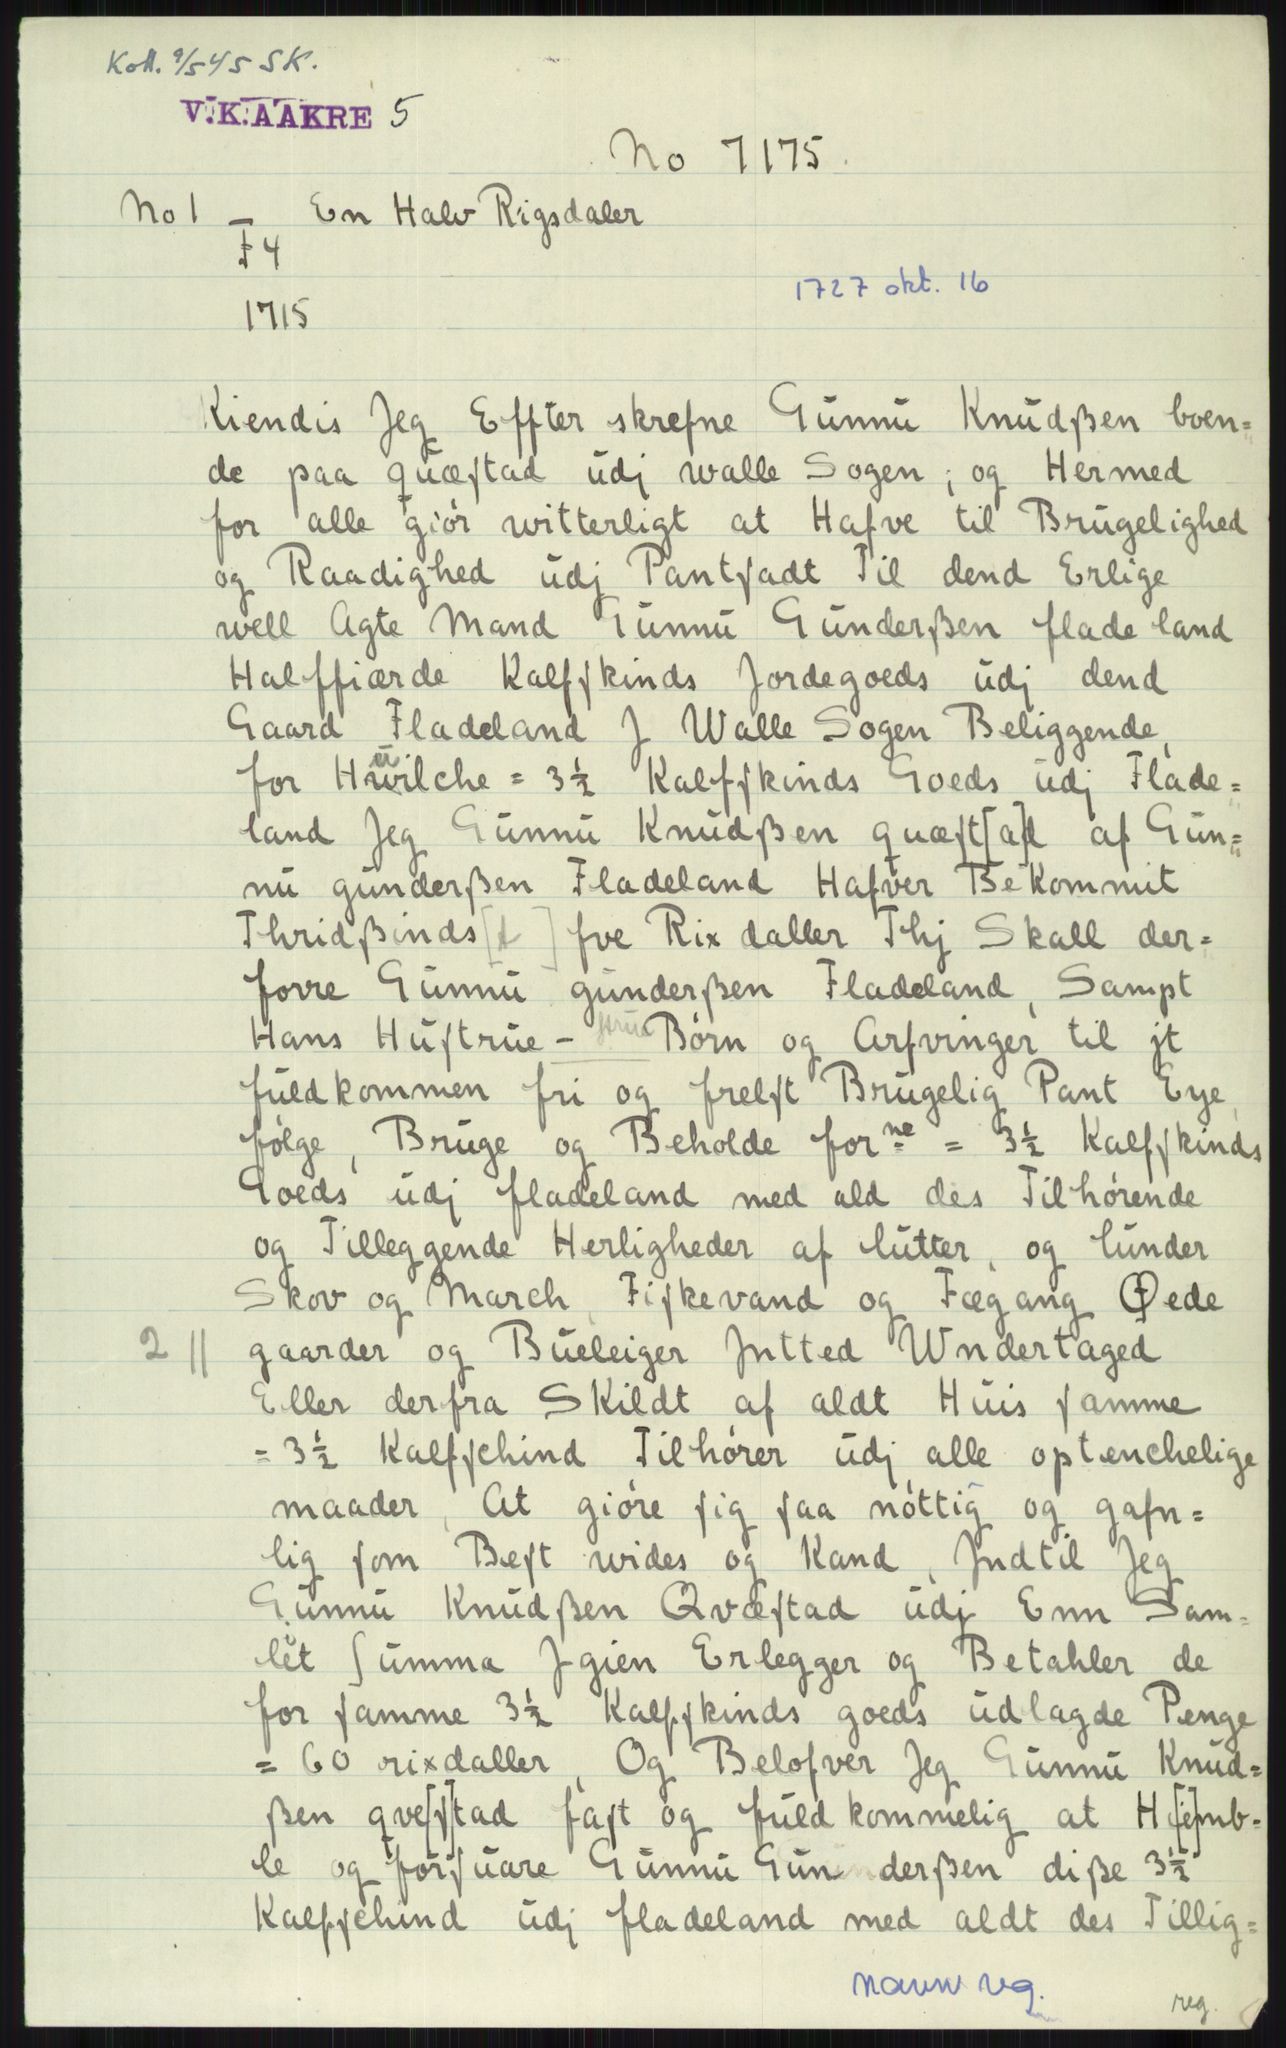 Koll. 9/5 45 SK.
V.K.AAKRE 5
No 7175.
No 1 — En Halv Rigsdaler
F 4
1715
1727 okt. 16
Kiendis Jeg Effter skrefne Gunnu Knudßen boen=
de paa quæstad udj walle Sogen; og Hermed
for alle giør witterligt at Hafve til Brugelighed
og Raadighed udj Pantsadt Til dend Erlige
well Agte Mand Gunnu Gunderßen flade land
Halffiærde Kalfskinds Jordegoeds udj dend
Gaard Fladeland J Walle Sogen Beliggende,
for Hwilche = 3½ Kalfskinds Goeds udj Flade=
land Jeg Gunnu Knudßen quæst[a]d af Gun=
nu gunderßen Fladeland Hafver Bekommit
Thridßinds[t ] fve Rix daller Thj Skall der=
forre Gunnu gunderßen Fladeland, Sampt
Hans Hustrue – Børn og Arfvinger til jt
fuldkommen fri og frelst Brugelig Pant Eye,
følge, Bruge og Beholde forne = 3½ Kalfskinds
Goeds udj fladeland med ald des Tilhørende
og Tilleggende Herligheder af lutter, og lunder
Skov og March, Fiskevand og Fægang Øede
2 || gaarder og Bueleiger Jntted Wndertaged
Eller derfra Skildt af aldt Huis samme
= 3½ Kalfschind Tilhører udj alle optenchelige
maader, At giøre sig saa nøttig og gafn=
lig som Best wides og Kand, Jndtil Jeg
Gunnu Knudßen Qvæstad udj Enn Sam=
let Summa Jgien Erlegger og Betahler de
for samme 3½ Kalfskinds goeds udlagde Penge
= 60 rixdaller, Og Belofver Jeg Gunnu Knud=
ßen qve[s]tad fast og fuldkommelig at H[je]mb=
le og forsuare Gunnu Gunderßen diße 3½
Kalfschind udj fladeland med aldt des Tillig=
navn reg.
reg.